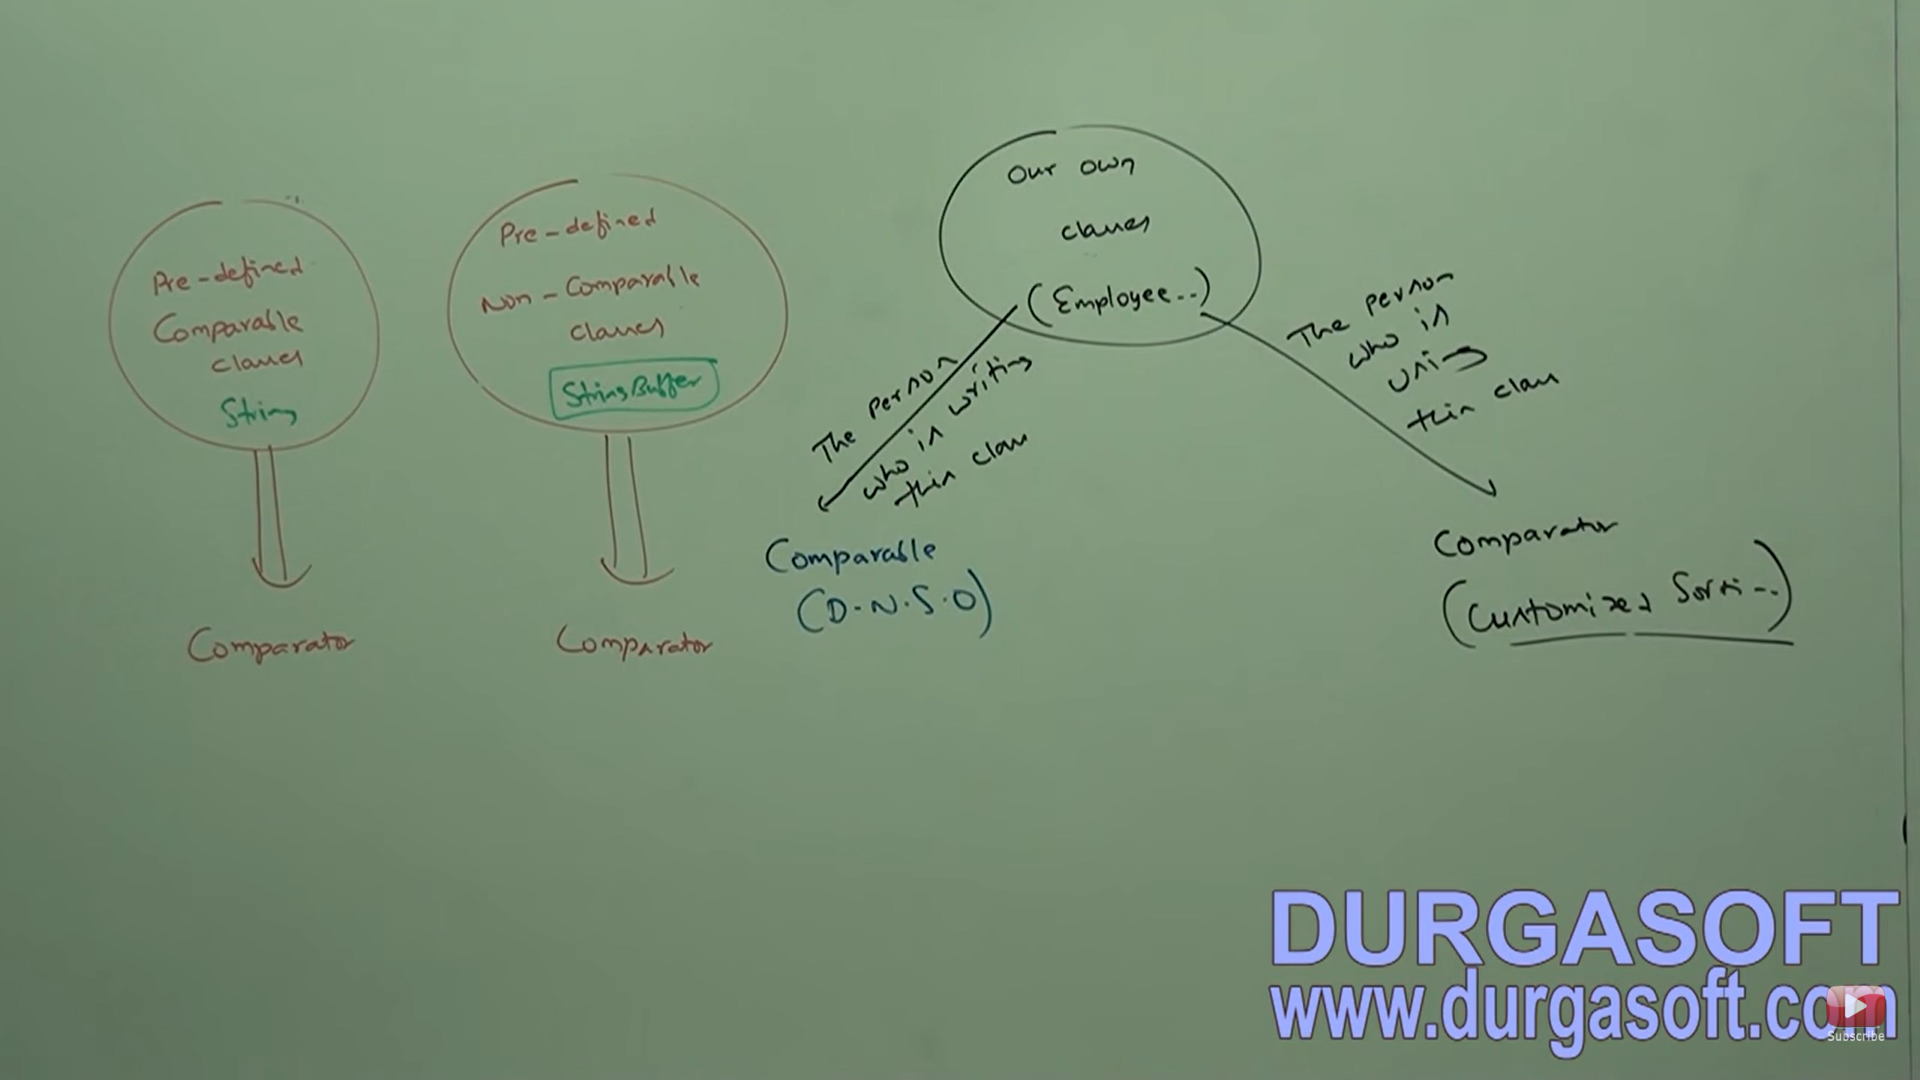 Pre-defined
Comparable
classes
String
Comparator
Pre-defined
Non-Comparable
classes
StringBuffer
Comparator
Our own
classes
(Employee..)
The person
who is writing
this class
Comparable
(D.N.S.O)
The person
who is
using
this class
Comparator
(Customized Sorti...)
DURGASOFT
www.durgasoft.com
Subscribe